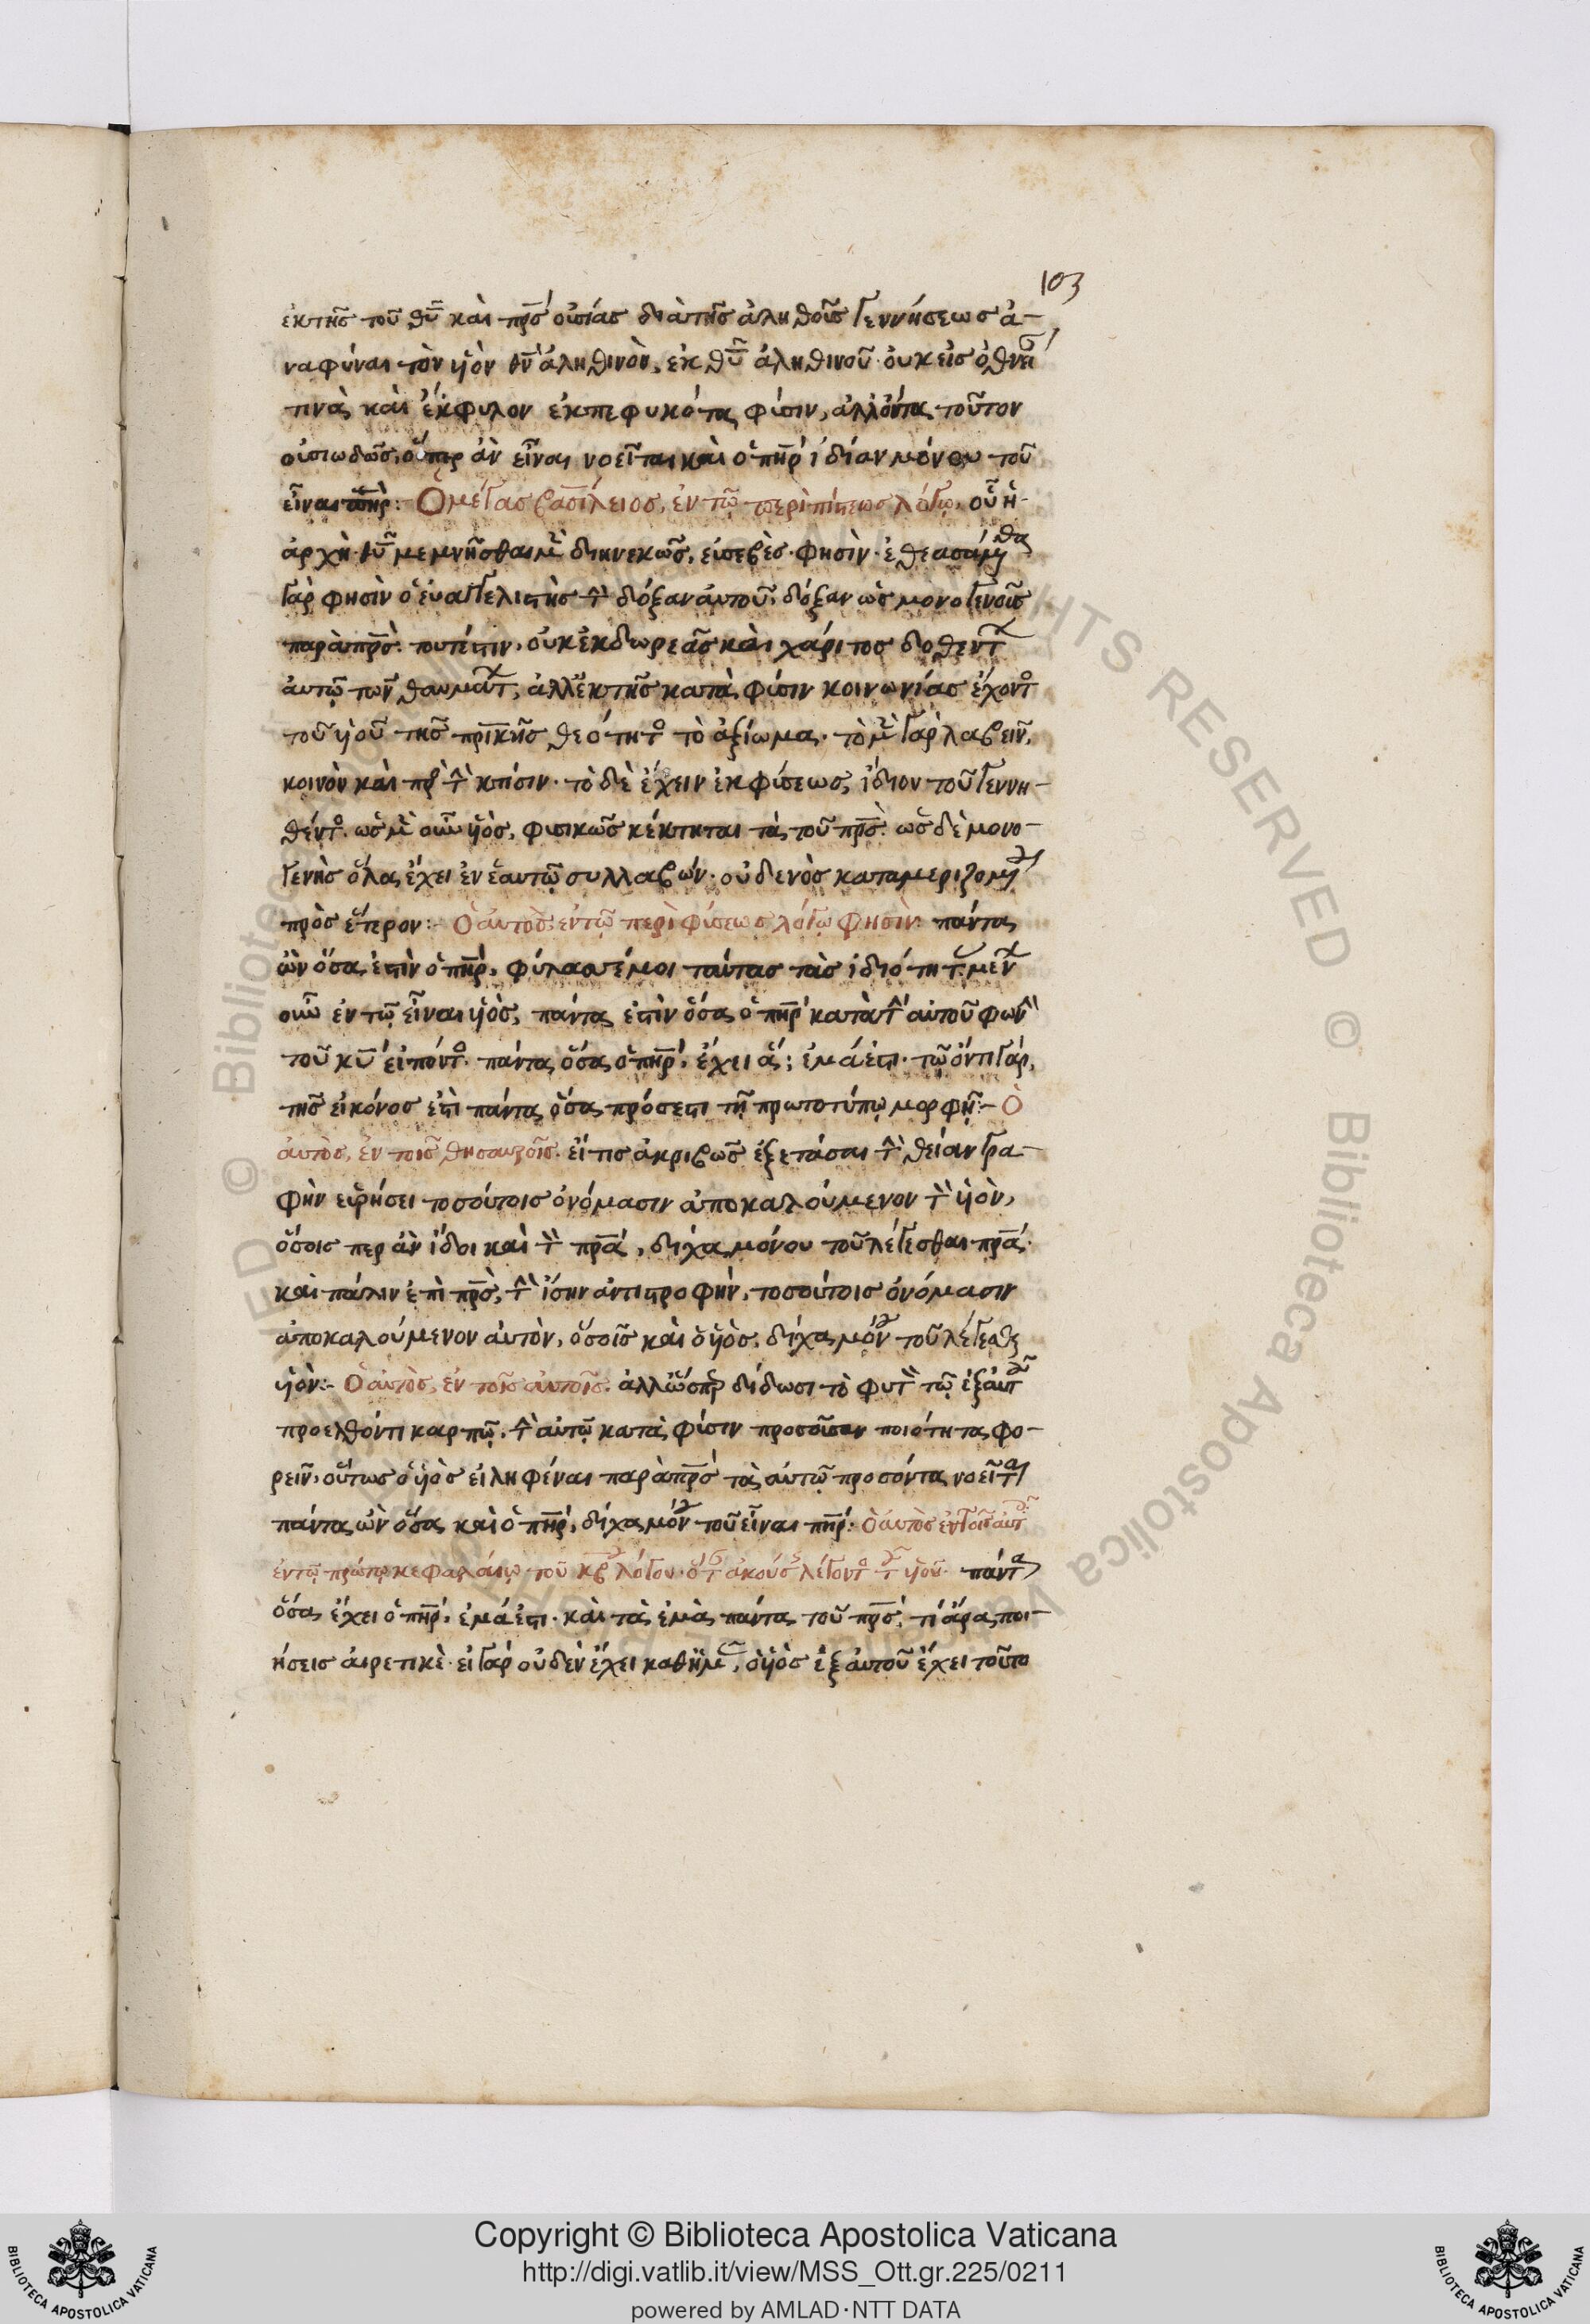 103
ἐκ τῆς τοῦ θῡ καὶ πρ̅ς οὐσίας διὰ τῆς ἀληθοῦς γεννήσεως ἀ-
ναφύναι τὸν ϋἱὸν θν̅ ἀληθινὸν, ἐκ θῡ ἀληθινοῦ. οὐκ εἰς ὀθνεί
τινὰ καὶ ἔκφυλον ἐκπεφυκότα φύσιν, ἀλλ' ὄντα τοῦτον
οὐσιωδῶς, ὅπερ ἂν εἶναι νοεῖται καὶ ὁ πη̅ρ ἰδίαν μόνου τοῦ
εἶναι πη̅ρ: Ὁ μέγας βασίλειος, ἐν τῷ περὶ πίστεως λόγῳ. οὗ ἡ
ἀρχὴ. θῡ μεμνῆσθαι μὲν διηνεκῶς, εὐσεβὲς. φησὶν. ἐθεασάμεθα
γὰρ φησὶν ὁ εὐαγγελιστὴς τὴν δόξαν αὐτοῦ, δόξαν ὡς μονογενοῦς
παρὰ πρ̅ς. τουτέστιν, οὐκ ἐκ δωρεᾶς καὶ χάριτος δοθέντων
αὐτῷ τῶν θαυμάτων, ἀλλ' ἐκ τῆς κατὰ φύσιν κοινωνίας ἔχοντο
τοῦ υἱοῦ τῆς πρι̅κῆς θεότητο τὸ ἀξίωμα. τὸ μὲν γὰρ λαβεῖν,
κοινὸν καὶ πρ τὴν κτίσιν. τὸ δὲ ἔχειν ἐκ φύσεως, ἴδιον τοῦ γεννη-
θέντο. ὡς μὲν οὖν υἱὸς, φυσικῶς κέκτηται τὰ τοῦ πρ̅ς. ὡς δὲ μονο-
γενὴς ὅλα ἔχει ἐν ἑαυτῷ συλλαβών. οὐδενὸς καταμεριζομένου
πρὸς ἕτερον:- Ὁ αὐτὸς ἐν τῷ περὶ φύσεως λόγῳ φησίν. πάντα
ὢν ὅσα ἐστὶν ὁ πη̅ρ, φύλασσέ μοι ταύτας τὰς ἰδιότητ. μένων
οὖν ἐν τῷ εἶναι υἱὸς, πάντα ἐστὶν ὅσα ὁ πη̅ρ κατὰ τὴν αὐτοῦ φωνὴν
τοῦ κῡ εἰπόντο. πάντα ὅσα ὁ πη̅ρ, ἔχει ἐμά ἐστι. τῷ ὄντι γάρ,
τῆς εἰκόνος ἐστὶ πάντα ὅσα πρόσεστι τῇ πρωτοτύπῳ μορφῇ:- Ὁ
αὐτὸς, ἐν τοῖς θησαυροῖς. εἴ τις ἀκριβῶς ἐξετάσαι τὴν θείαν γρα-
φὴν εὑρήσει τοσούτοις ὀνόμασιν ἀποκαλούμενον τὸν υἱὸν,
ὅσοις περ ἂν ἴδοι καὶ τὸν πρ̅α, δίχα μόνου τοῦ λέγεσθαι πρ̅α.
καὶ πάλιν ἐπὶ πρ̅ς, τὴν ἴσην ἀντιστροφὴν, τοσούτοις ὀνόμασιν
ἀποκαλούμενον αὐτὸν, ὅσοις καὶ ὁ υἱὸς, δίχα μόνου τοῦ λέγεσθαι
υἱὸν:- Ὁ αὐτὸς, ἐν τοῖς αὐτοῖς. ἀλλ' ὥσπερ δίδωσι τὸ φυτὸν τῷ ἐξ αὐτοῦ
προελθόντι καρπῷ, τὴν αὐτῷ κατὰ φύσιν προσοῦσαν ποιότητα φο-
ρεῖν, οὕτως ὁ υἱὸς εἰληφέναι παρὰ πρ̅ς τὰ αὐτῷ προσόντα νοεῖται
πάντα ὢν ὅσα καὶ ὁ πη̅ρ, δίχα μόνου τοῦ εἶναι πη̅ρ: ὁ αὐτὸς
ἐν τῷ πρώτῳ κεφαλαίῳ τοῦ λόγου. ὅταν ἀκούσῃς λέγοντο τοῦ υἱοῦ. πάντα
ὅσα ἔχει ὁ πη̅ρ, ἐμά ἐστι. καὶ τὰ ἐμὰ πάντα τοῦ πρ̅ς, τί ἄρα ποι-
ήσεις αἱρετικὲ. εἰ γὰρ οὐδὲν ἔχει καθ' ἡμᾶς, ὁ υἱὸς ἐξ αὐτοῦ ἔχει τοῦτο
Copyright © Biblioteca Apostolica Vaticana
http://digi.vatlib.it/view/MSS_Ott.gr.225/0211
powered by AMLAD·NTT DATA